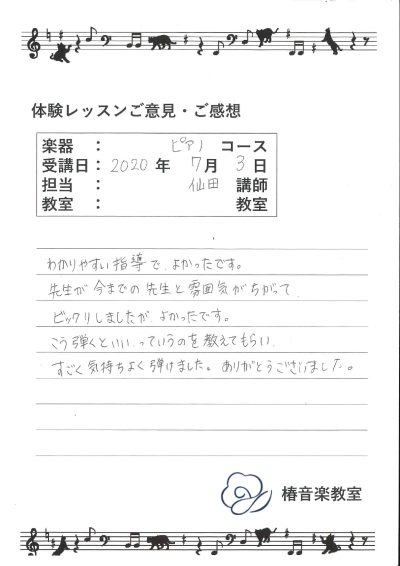 体験レッスンご意見・ご感想
楽器 : ピアノ コース
受講日: 2020 年 7月 3日
担当 : 仙田 講師
教室 : 教室
わかりやすい指導で、よかったです。
先生が今までの先生と雰囲気がちがって、
ビックリしましたが、よかったです。
こう弾くといい、っていうのを教えてもらい、
すごく気持ちよく弾けました。ありがとうございました。
椿音楽教室